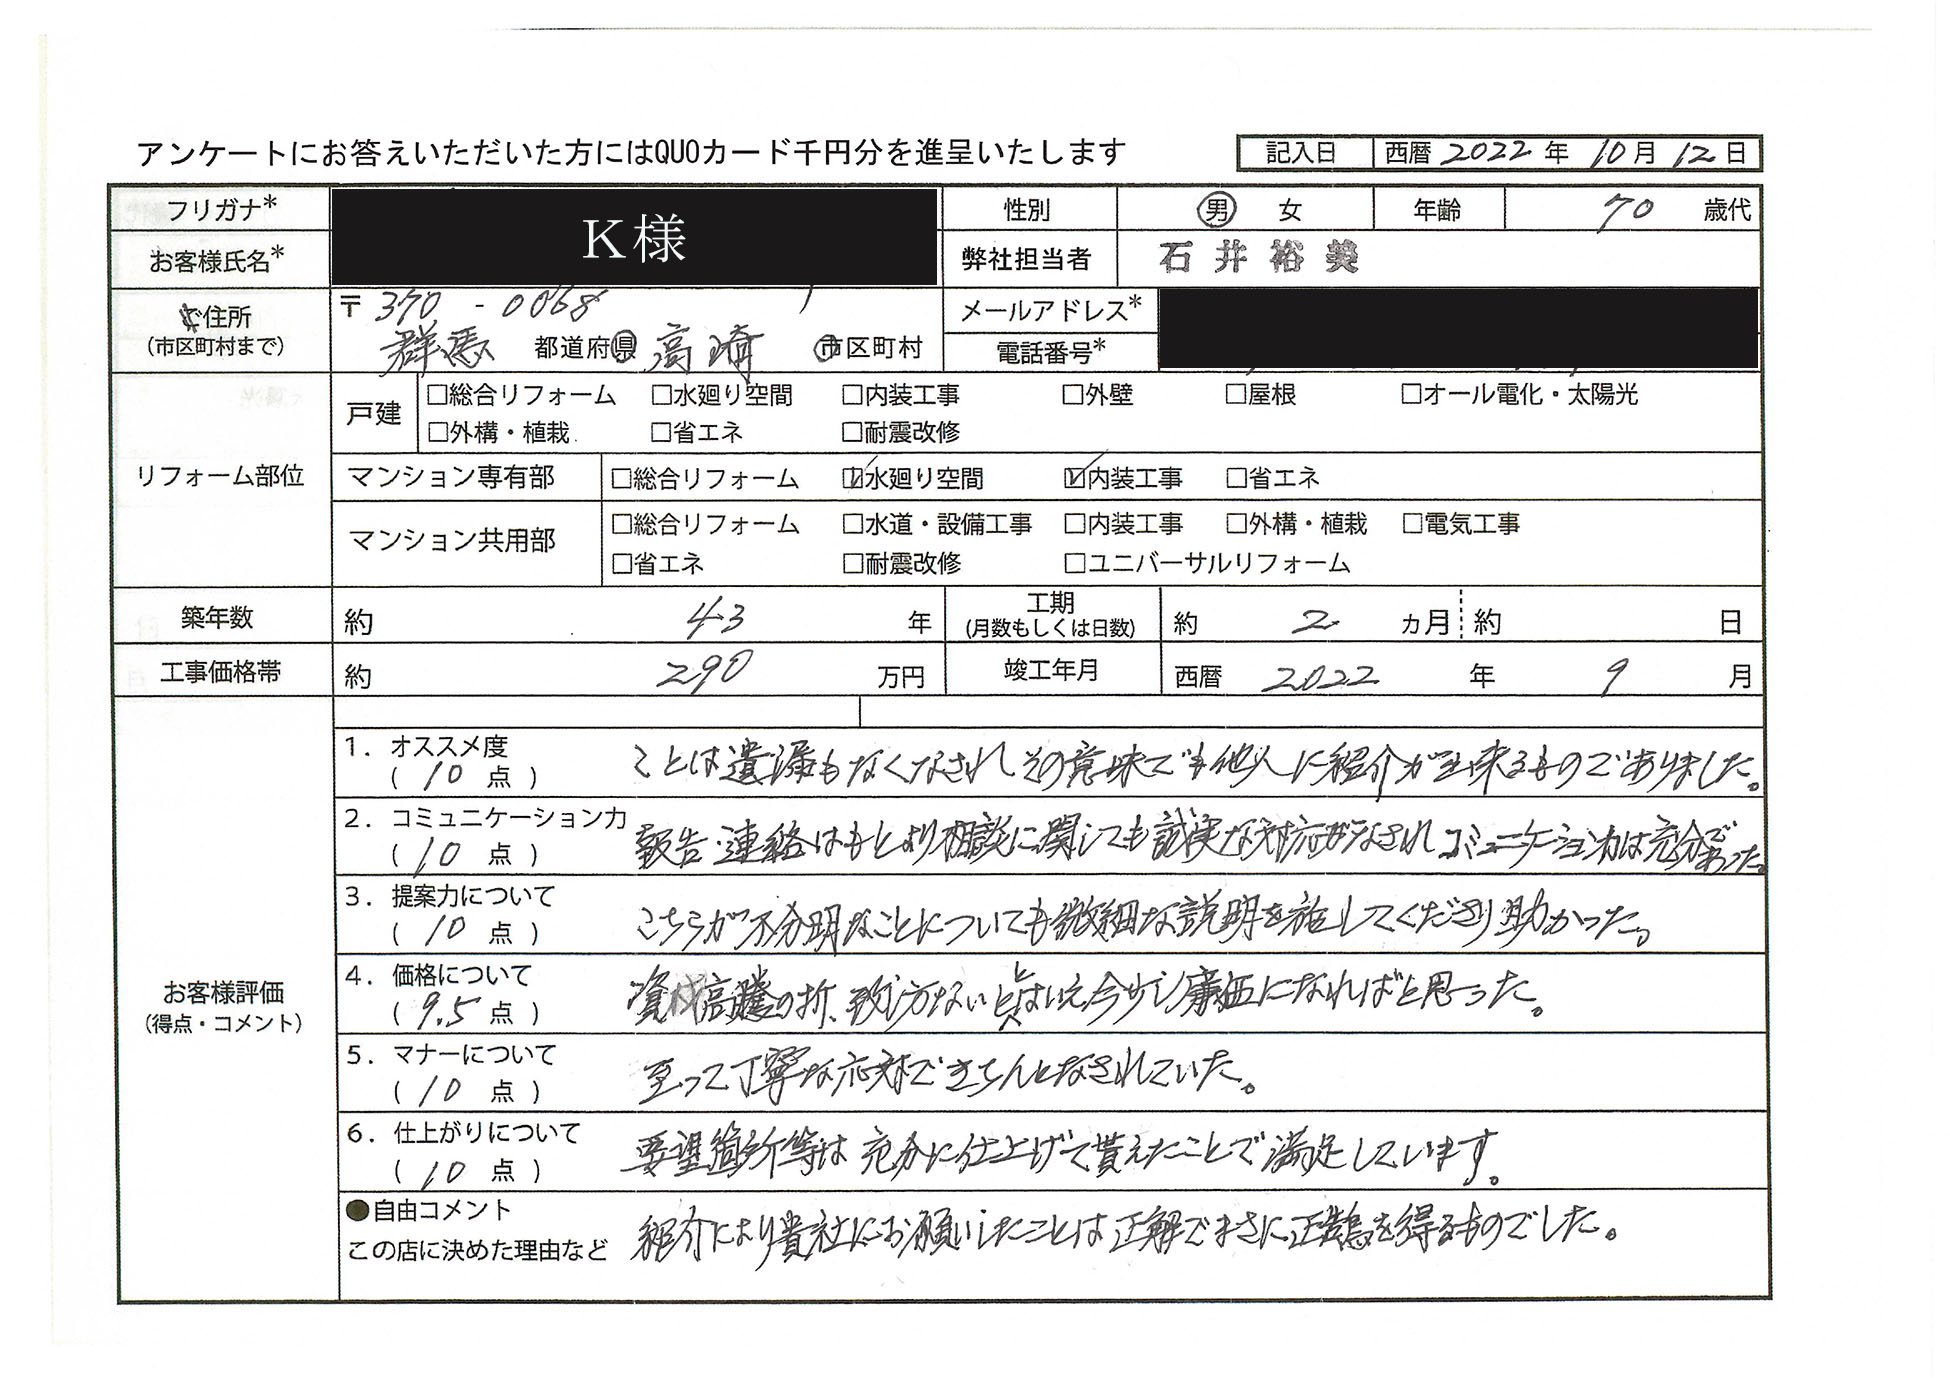 アンケートにお答えいただいた方にはQUOカード千円分を進呈いたします
記入日 西暦 2022 年 10 月 12 日
フリガナ* K様 性別 男 女 年齢 70 歳代
お客様氏名* 弊社担当者 石井裕美
ご住所 〒370-0068 メールアドレス*
(市区町村まで) 群馬 都道府県 高崎 市区町村 電話番号*
リフォーム部位
戸建 □総合リフォーム □水廻り空間 □内装工事 □外壁 □屋根 □オール電化・太陽光
□外構・植栽 □省エネ □耐震改修
マンション専有部 □総合リフォーム ☑水廻り空間 ☑内装工事 □省エネ
マンション共用部 □総合リフォーム □水道・設備工事 □内装工事 □外構・植栽 □電気工事
□省エネ □耐震改修 □ユニバーサルリフォーム
築年数 約 43 年 工期 (月数もしくは日数) 約 2 ヵ月 約 日
工事価格帯 約 290 万円 竣工年月 西暦 2022 年 9 月
お客様評価
(得点・コメント)
1. オススメ度
( 10 点 ) ことは遺漏もなくなされその意味でも他人に紹介が出来るものでありました。
2. コミュニケーション力
( 10 点 ) 報告・連絡はもとより相談に関しても誠実な対応がなされコミュニケーション力は充分であった。
3. 提案力について
( 10 点 ) こちらが不分明なことについても微細な説明を施してくださり助かった。
4. 価格について
( 9.5 点 ) 資材高騰の折、致し方ないとはいえ今少し廉価になればと思った。
5. マナーについて
( 10 点 ) 至って丁寧な応対できちんとなされていた。
6. 仕上がりについて
( 10 点 ) 要望箇所等は充分に仕上げて貰えたことで満足しています。
●自由コメント
この店に決めた理由など 紹介により貴社にお願いしたことは正解でまさに正鵠を得るものでした。